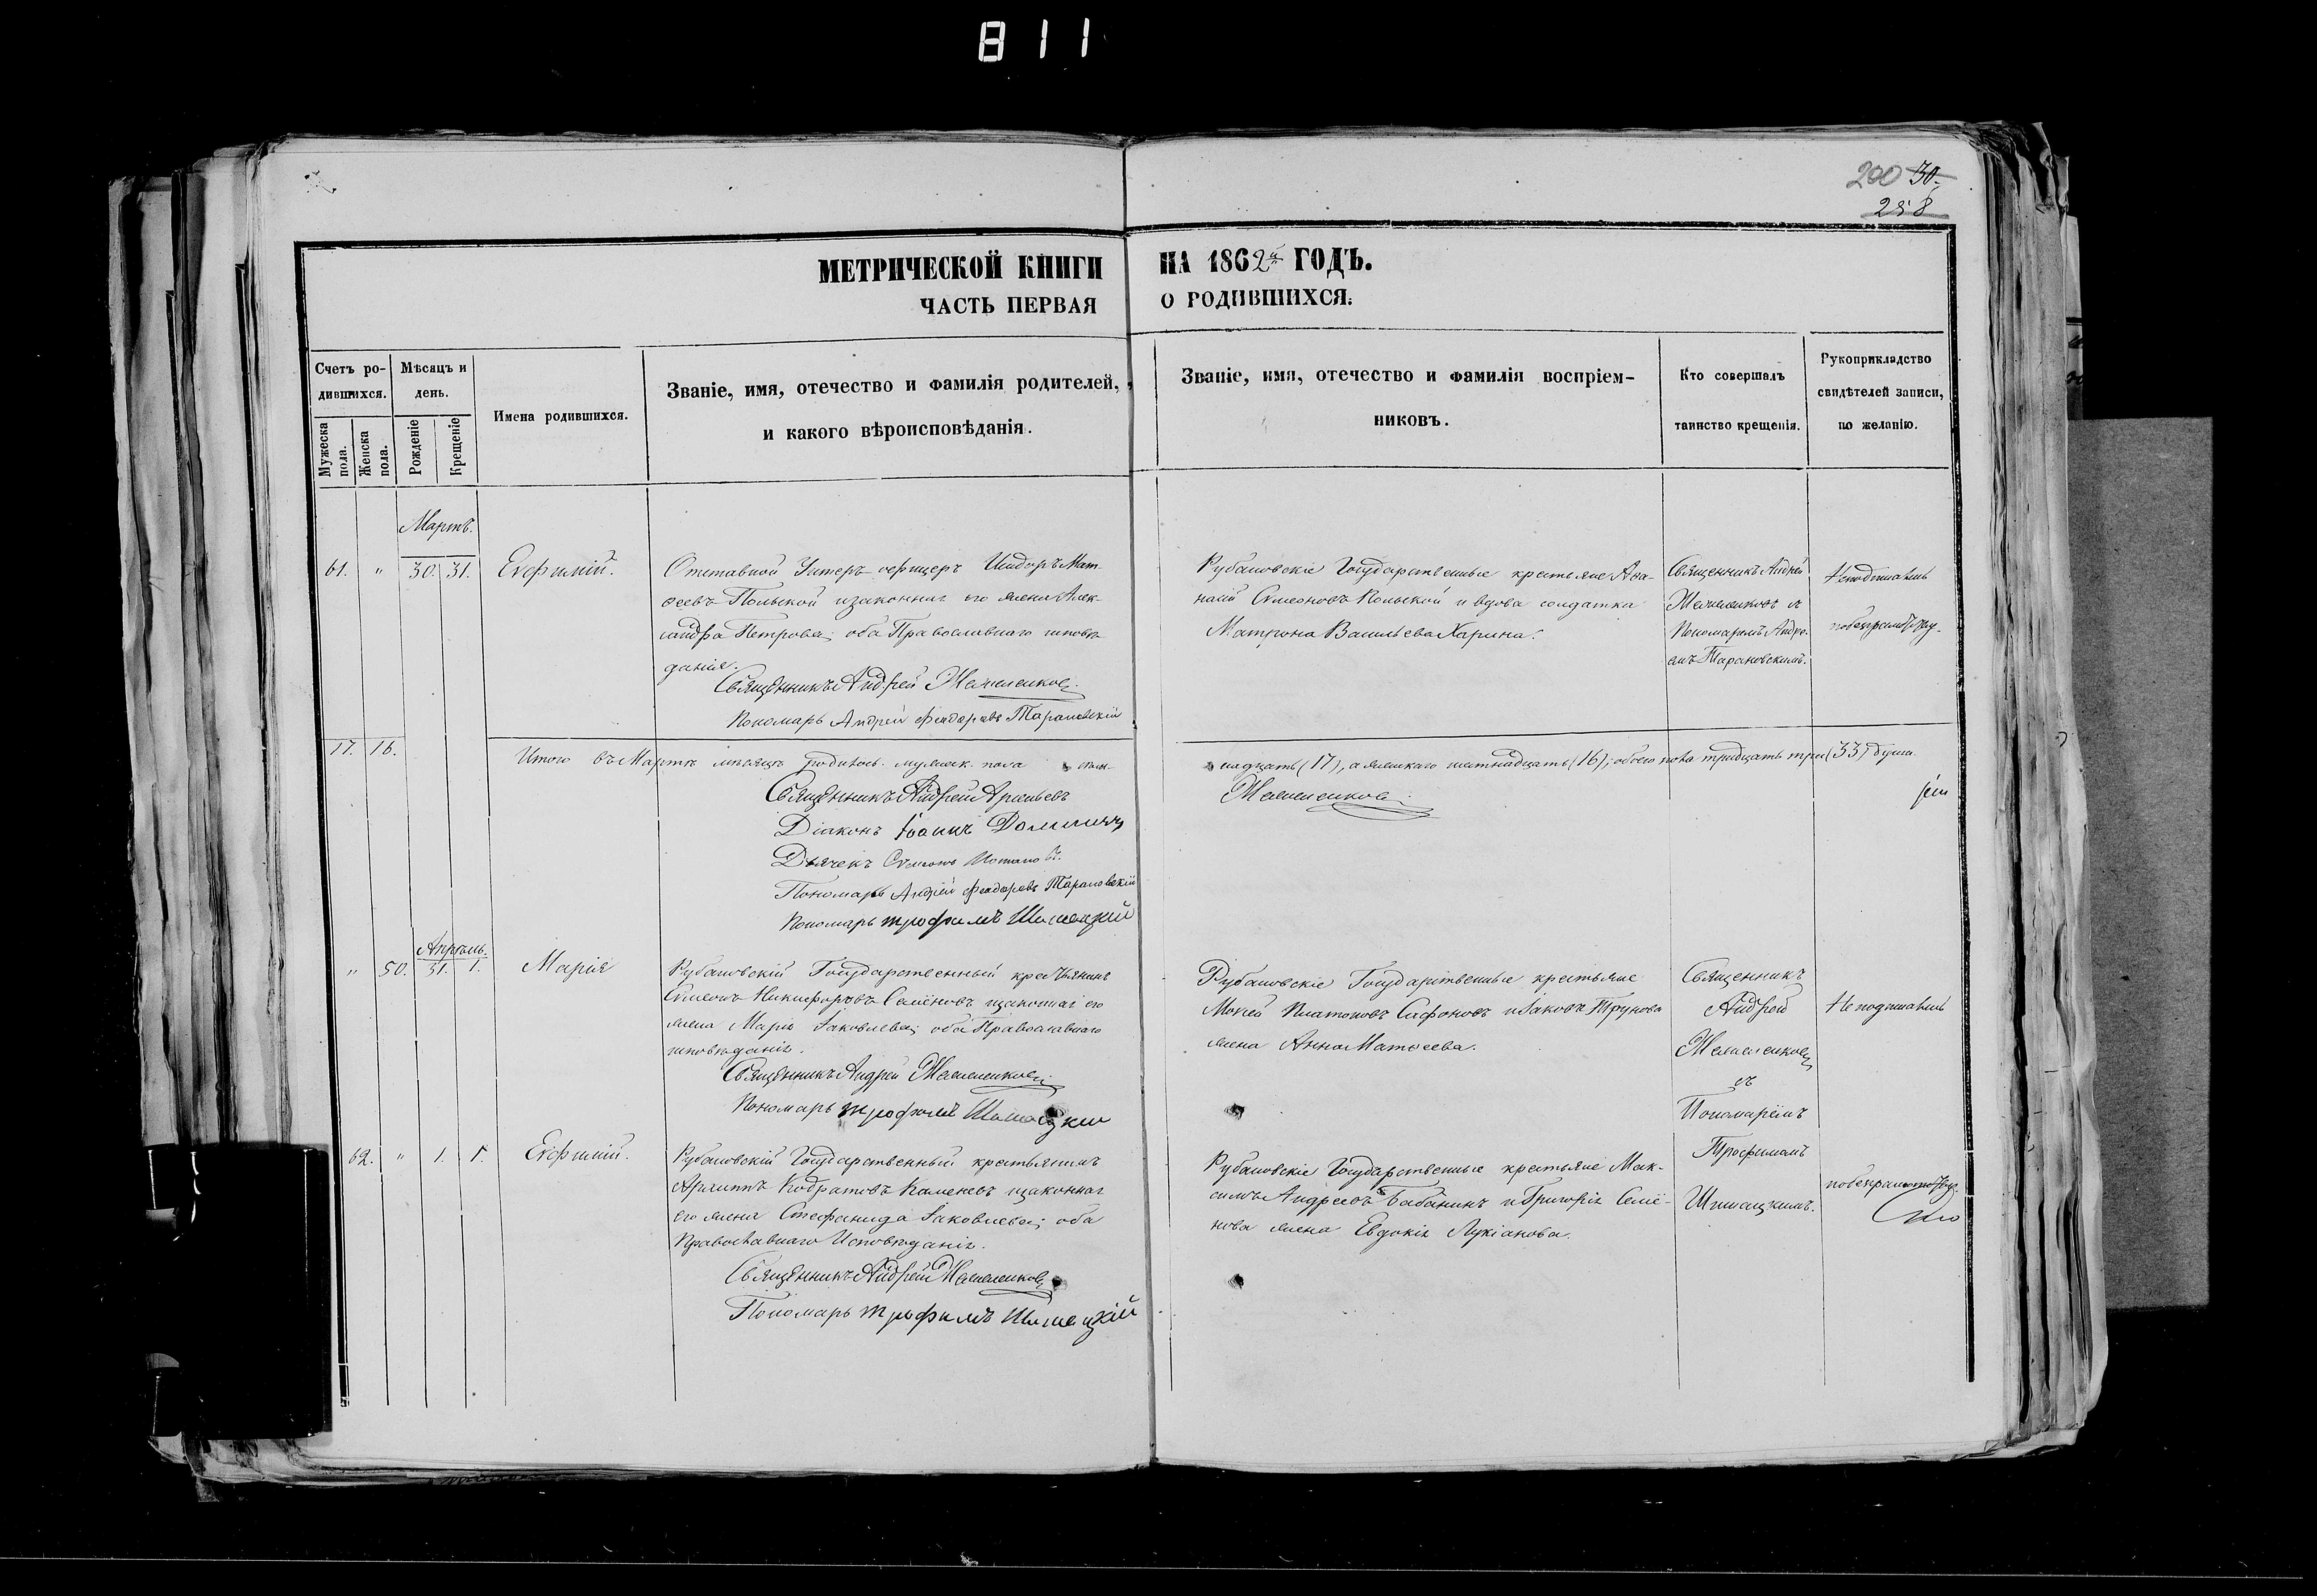 811
200 30.
258
МЕТРИЧЕСКОЙ КНИГИ НА 1862й ГОДЪ.
ЧАСТЬ ПЕРВАЯ О РОДИВШИХСЯ.
Счетъ ро-
дившихся.
Мужеска
пола.
Женска
пола.
Мѣсяцъ и
день.
Рожденіе
Крещеніе
Имена родившихся.
Званіе, имя, отечество и фамилія родителей,
и какого вѣроисповѣданія.
Званіе, имя, отечество и фамилія воспріем-
никовъ.
Кто совершалъ
таинство крещенія.
Рукоприкладство
свидѣтелей записи,
по желанію.
Мартъ.
61. " 30. 31. Евфимій.
Отставной Унтеръ-офицеръ Исидоръ Мат-
ѳеевъ Польской изаконная его жена Алек-
сандра Петрова; оба Православнаго исповѣ-
данія.
Священникъ Андрей
Пономарь Андрей Феодоровъ Тарановскій
Рубановскіе Государственные крестьяне Аѳа-
насій Симеоновъ Польской и вдова солдатка
Матрона Васильева Харина.
Священникъ Андрей
съ
Пономаремъ Андре-
емъ Тарановскимъ.
Неподписались
17. 16.
Итого въ Мартѣ мѣсяцѣ родилось мужеск. пола семь-
надцать (17), а женскаго шестнадцать (16); обоего пола тридцать три (33) души.
Священникъ Андрей Арсеньевъ
Діаконъ Іоаннъ
Дьячекъ Симеонъ
Пономарь Андрей Феодоровъ Тарановскій
Пономарь Трофимъ
Апрѣль.
" 50. 31. 1. Марія
Рубановскій Государственный крестьянинъ
Симеонъ Никифоровъ Семёновъ изаконная его
жена Марія Іаковлева; оба Православнаго
исповѣданія.
Священникъ Андрей
Пономарь Трофимъ
Рубановскіе Государственные крестьяне
Мокей Платоновъ Сафоновъ и Іакова Трунова
жена Анна Матѳеева.
Священникъ
Андрей
съ
Пономарёмъ
Трофимомъ
Неподписались
62. " 1. 1. Евфимій.
Рубановскій Государственный крестьянинъ
Архиппъ Кодратовъ Каменевъ изаконная
его жена Стефанида Іаковлева; оба
Православнаго Исповѣданія.
Священникъ Андрей
Пономарь Трофимъ
Рубановскіе Государственные крестьяне Мак-
симъ Андреевъ Бабанинъ и Григорія Семё-
нова жена Евдокія Лукіанова.